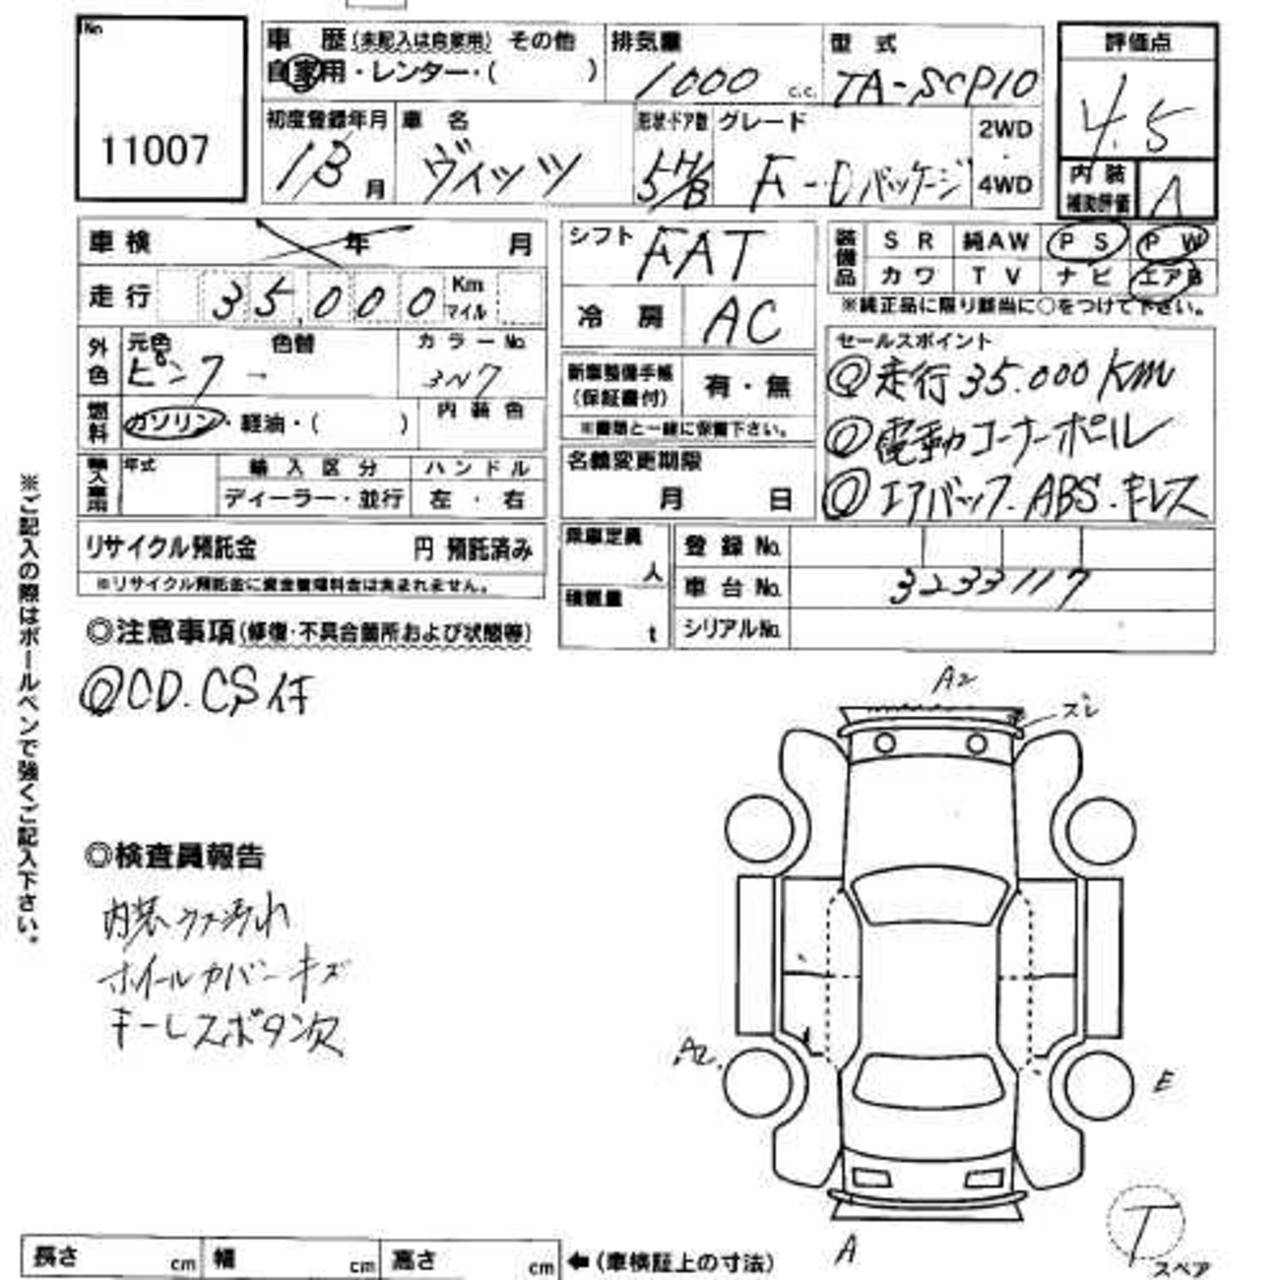 No
11007
車 歴 (未記入は自家用) その他
自家用・レンター・( )
排気量
1000 c.c.
型 式
TA-SCP10
評価点
4.5
内 装
補助評価
A
初度登録年月
13 月
車 名
ヴィッツ
形状・ドア数
5H/B
グレード
F-Dパッケージ
2WD
4WD
車 検 年 月
走 行 35,000 Km
マイル
外色
元色 色替
ピンク -
カラーNo.
3N7
燃料
ガソリン・軽油・( )
内 装 色
輸入車用
年式
輸 入 区 分
ディーラー・並行
ハ ン ド ル
左 ・ 右
リサイクル預託金 円 預託済み
※リサイクル預託金に資金管理料金は含まれません。
シフト FAT
冷 房 AC
新車整備手帳
(保証書付)
有・無
※書類と一緒に保管下さい。
名義変更期限
月 日
装備品
S R 純AW P S P W
カワ T V ナビ エアB
※純正品に限り該当に○をつけて下さい。
セールスポイント
◎走行35.000Km
◎電動コーナーポール
◎エアバッグ.ABS.キーレス
乗車定員
人
積載量
t
登 録 No.
車 台 No. 3233117
シリアルNo.
◎注意事項(修復・不具合箇所および状態等)
◎CD.CS付
◎検査員報告
内装ウス汚れ
ホイールカバーキズ
キーレスボタン欠
※ご記入の際はボールペンで強くご記入下さい。
A2
ズレ
A2
E
A
T
スペア
長さ cm 幅 cm 高さ cm ←(車検証上の寸法)